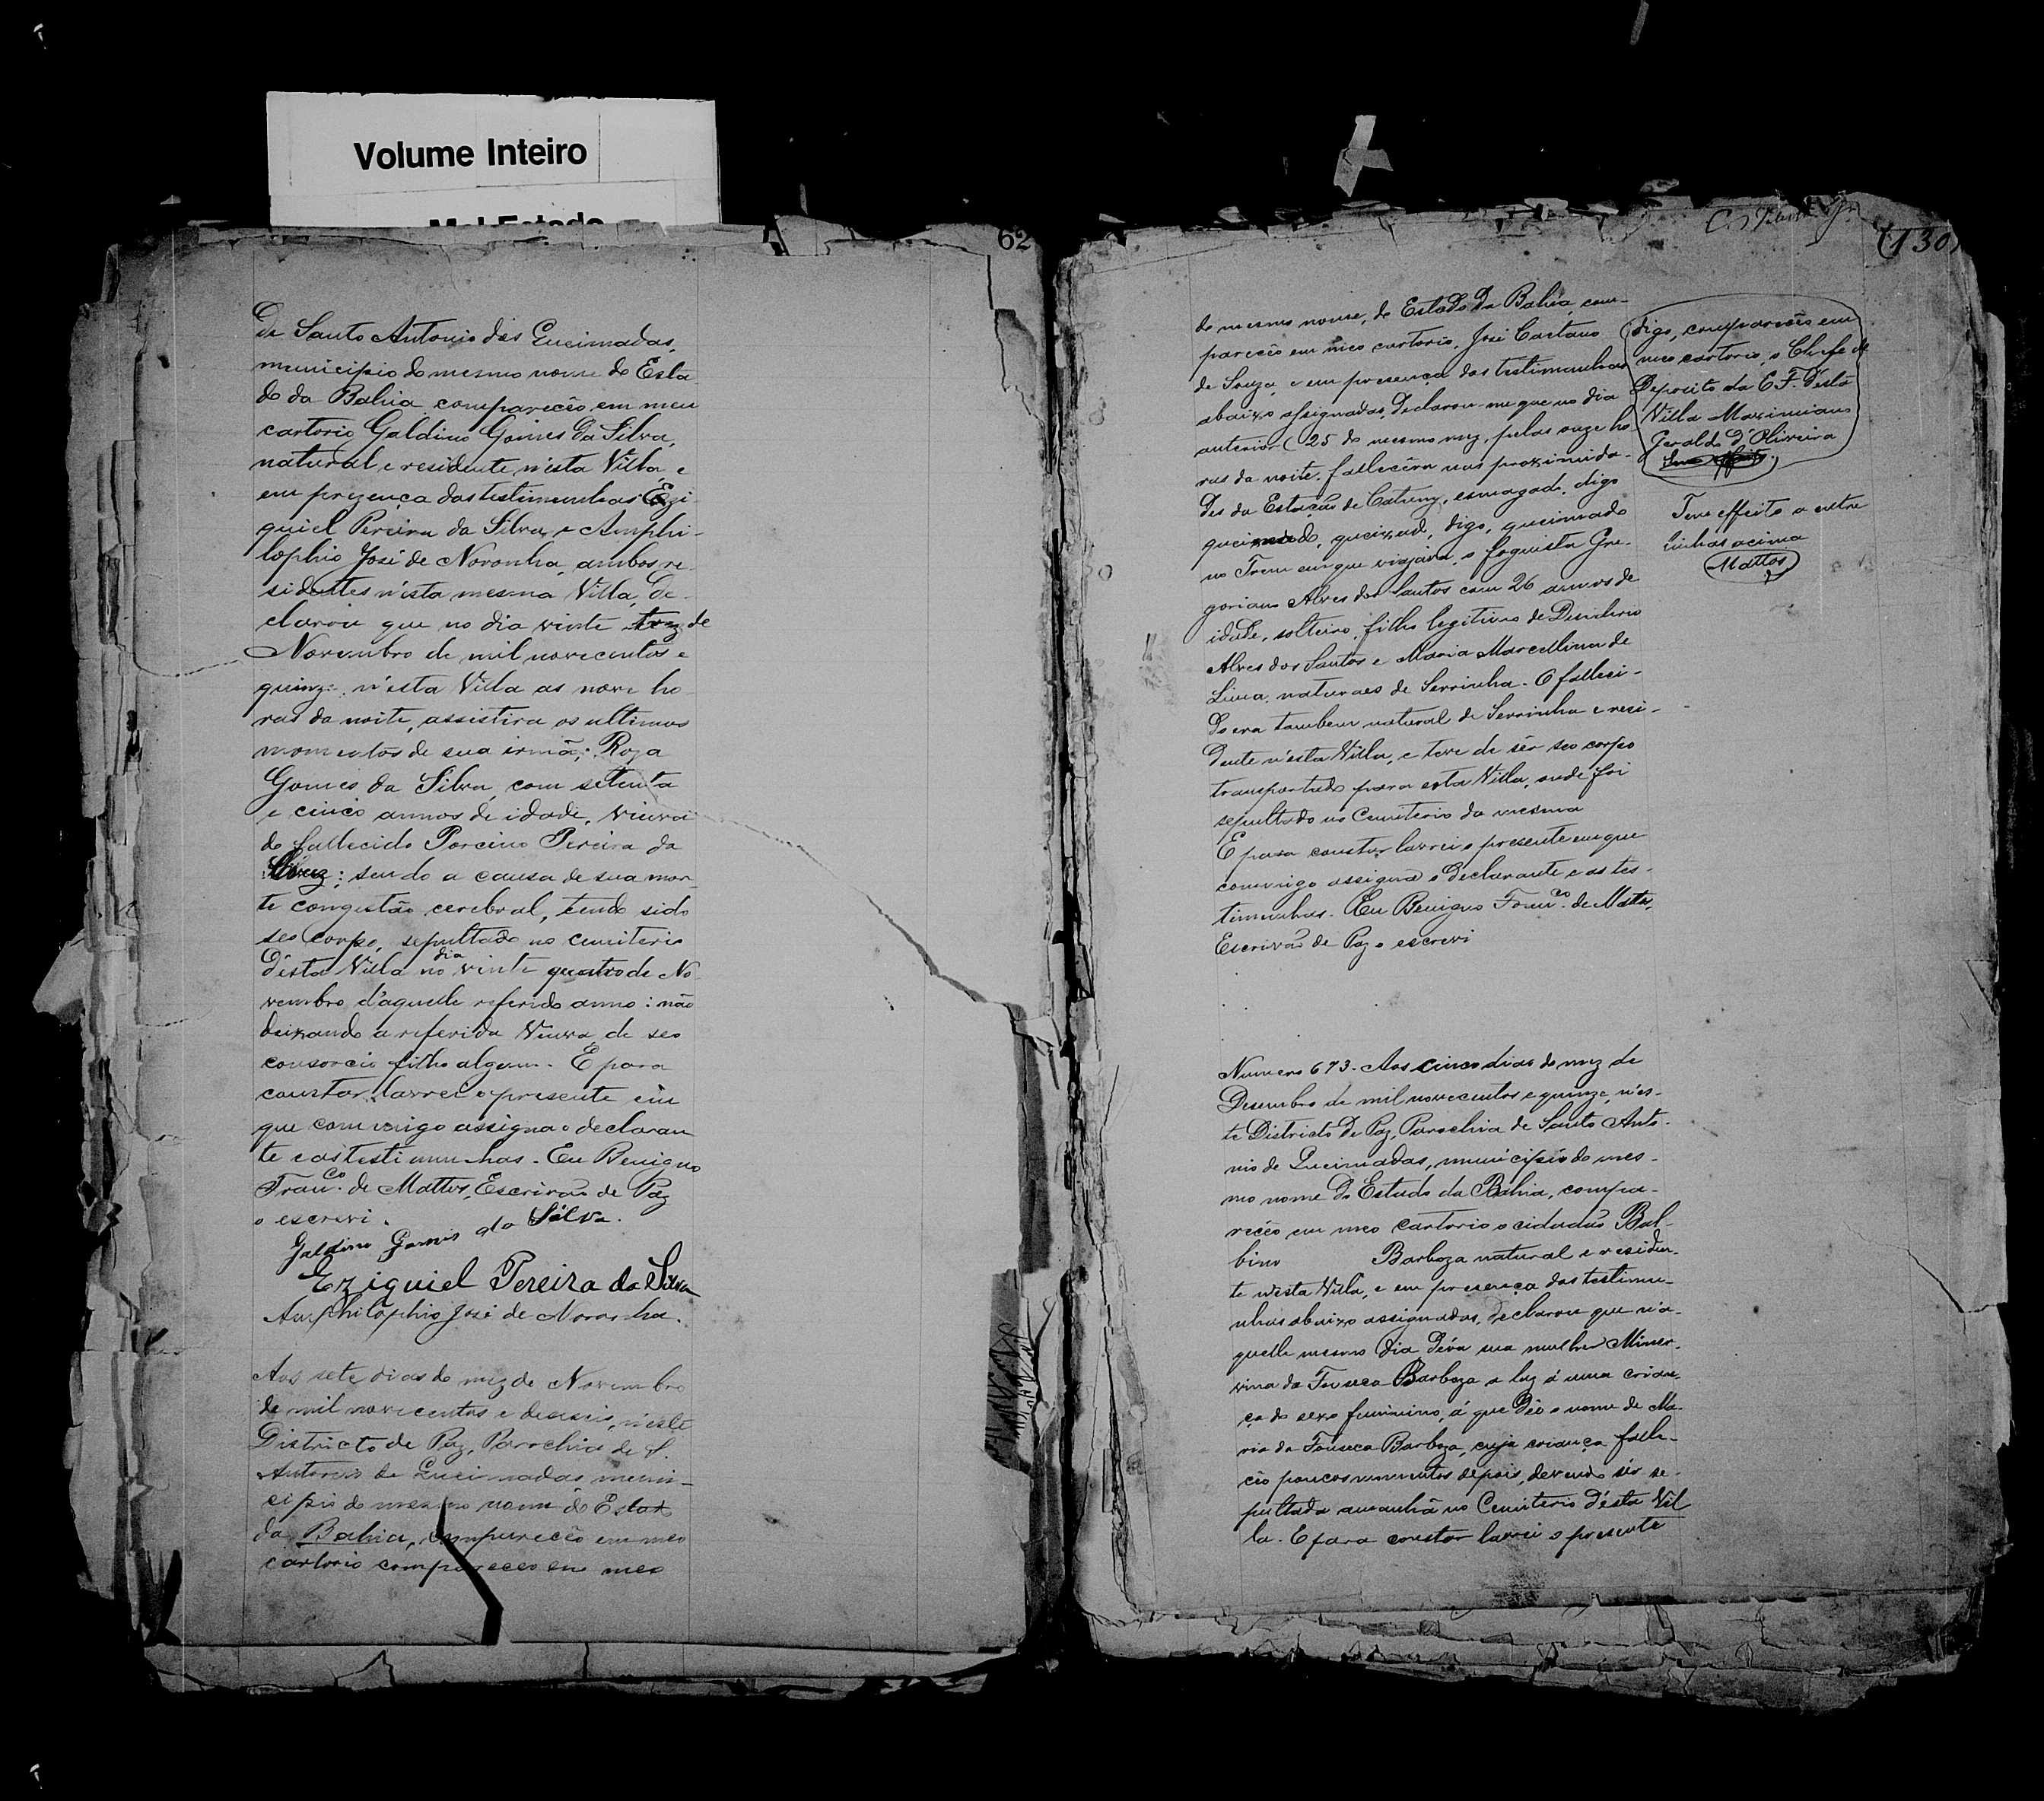 Volume Inteiro
62
de Santo Antonio das Queimadas,
municipio do mesmo nome do Esta
do da Bahia compareceo em meu
cartorio Galdino Gomes da Silva,
natural e residente n'esta Villa e
em prezença das testimunhas Ezi-
quiel Pereira da Silva, e Amphi-
lophio José de Noronha, ambos re-
sidentes n'esta mesma Villa, de-
clarou que no dia vinte trez de
Novembro de mil novecentos e
quinze, n'esta Villa as nove ho
ras da noite, assistira os ultimos
momentos de sua irmã; Roza
Gomes da Silva, com setenta
e cinco annos de idade, viuva
do fallecido Porcino Pereira da
: sendo a causa de sua mor-
te congestão cerebral, tendo sido
seo corpo, sepultado no cemiterio
d'esta Villa no dia vinte quatro de No
vembro d'aquelle referido anno: não
deixando a referida Viuva de seo
consorcio filho algum. E para
constar lavrei o presente em
que commigo assigna o declaran
te e as testimunhas. Eu Benigno
Franco. de Mattos, Escrivão de Paz
o escrevi.
Galdino Gomes da Silva.
Eziquiel Pereira da Silva
Amphilophio José de Noronha.
Aos sete dias do mez de Novembro
de mil novecentos e deseseis, n'este
Districto de Paz, Parochia de S.
Antonio de Queimadas, muni-
cipio do mesmo nome do Estado
da Bahia, compareceo em meo
cartorio compareceo em meo
(130)
do mesmo nome, do Estado da Bahia, com-
pareceo em meo cartorio, José Caetano
de Souza, e em presença das testimunhas
abaixo assignadas, declarou-me que no dia
anterior (25 do mesmo mez, pelas onze ho-
ras da noite, fallecêra nas proximida-
des da Estação de Catuny, esmagado, digo
queimado, queixad, digo, queimado
no Trem em que viajava, o foguista Gre-
goriano Alves dos Santos com 26 annos de
idade, solteiro, filho legitimo de Desiderio
Alves dos Santos e Maria Marcellina de
Lima, naturaes de Serrinha. O falleci-
do era tambem natural de Serrinha e resi-
dente n'esta Villa, e teve de sêr seo corpo
transportado para esta Villa, onde foi
sepultado no Cemiterio da mesma
E para constar lavrei o presente em que
commigo assigna o declarante e as tes-
timunhas. Eu Benigno Franco. de Mattos,
Escrivão de Paz o escrevi
digo, compareceo em
meo cartorio, o Chefe de
Deposito da E.F. d'esta
Villa Maximiano
Geraldo d'Oliveira
Teve effeito a entre
linhas acima
Mattos
Numero 673. Aos cinco dias do mez de
Desembro de mil novecentos e quinze, n'es-
te Districto de Paz, Parochia de Santo Anto-
nio de Queimadas, municipio do mes-
mo nome do Estado da Bahia, compa-
receo em meo cartorio o cidadão Bal-
bino Barboza natural e residen-
te n'esta Villa, e em presença das testimu-
nhas abaixo assignadas, declarou que n'a-
quelle mesmo dia déra sua mulher Miner-
vina da Fonseca Barboza a luz á uma crian-
ça do sexo feminino, á que déo o nome de Ma-
ria da Fonseca Barboza, cuja criança falle-
ceo poucos momentos depois, devendo sêr se-
pultada amanhã no Cemiterio d'esta Vil
la. E para constar lavrei o presente